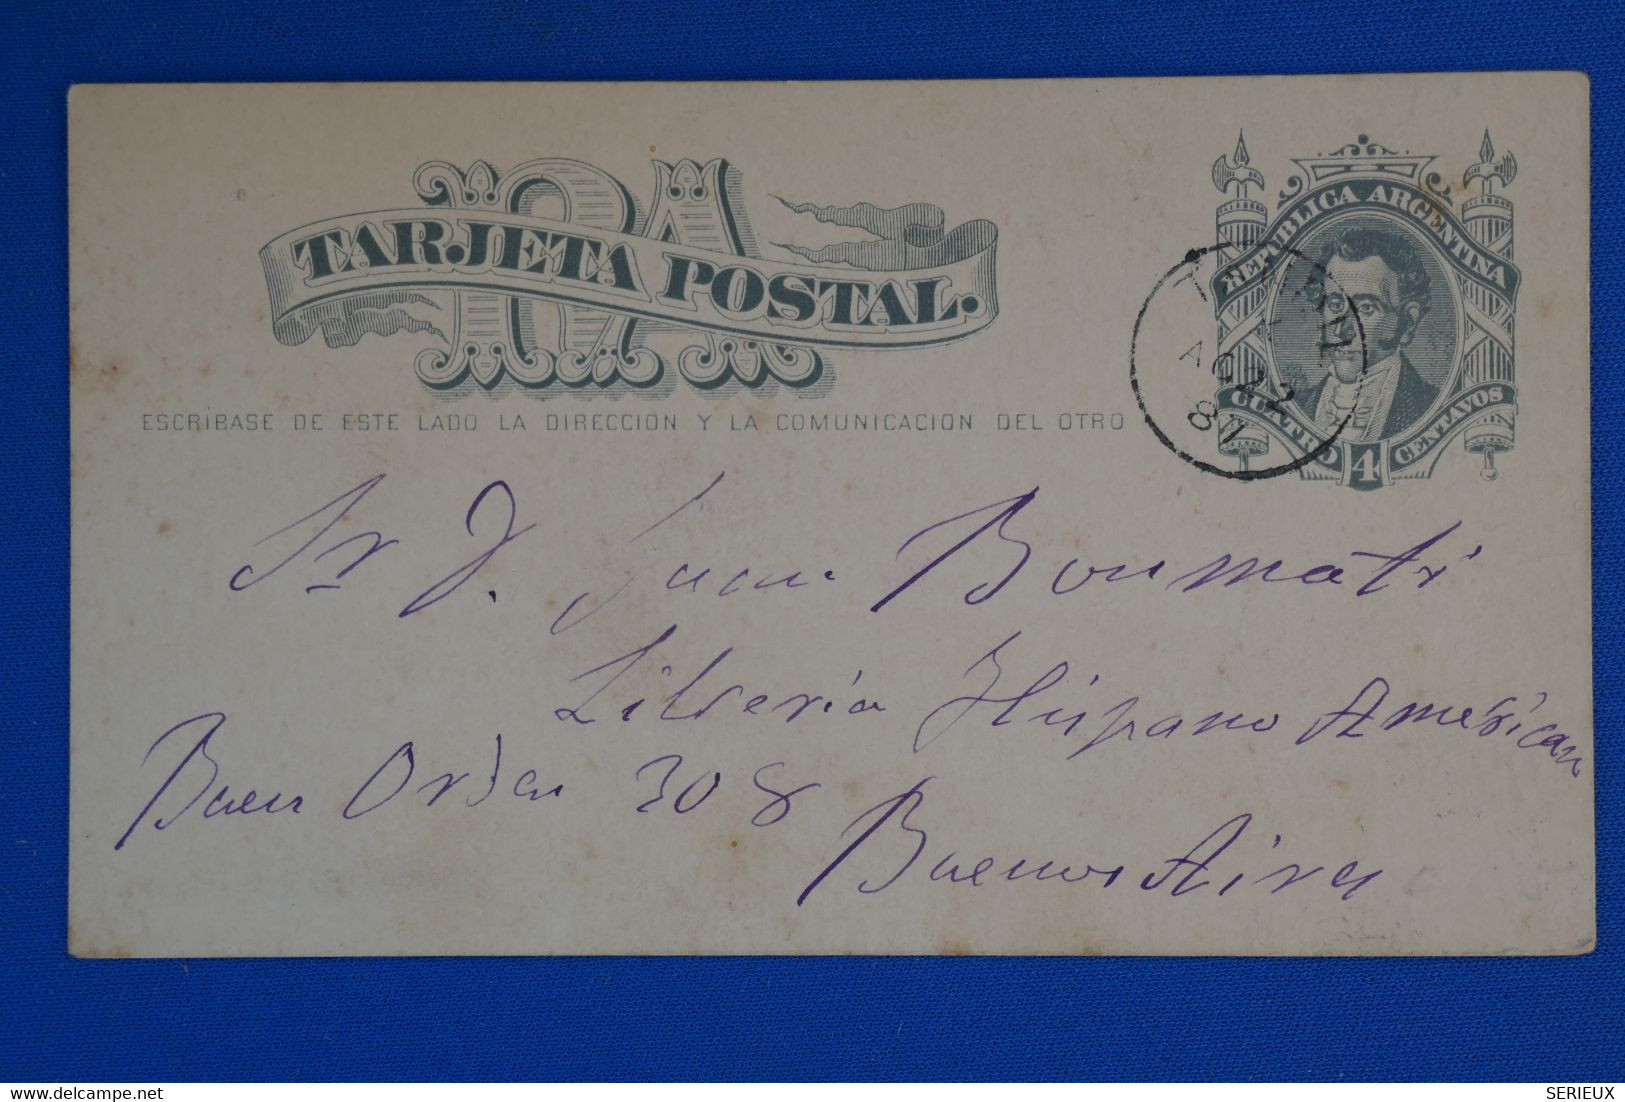 RA
TARJETA POSTAL.
REPUBLICA ARGENTINA
CUATRO 4 CENTAVOS
AG 22
81
ESCRÍBASE DE ESTE LADO LA DIRECCION Y LA COMUNICACION DEL OTRO
Sr D. Juan Bonmatí
Librería Hispano Americana
Buen Orden 308
Buenos Aires
delcampe.net
SERIEUX